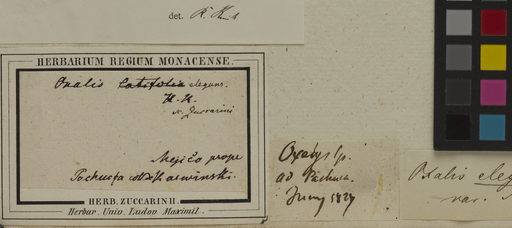 det.
HERBARIUM REGIUM MONACENSE.
Oxalis latifolia elegans.
H. K.
Zuccarini
Mejico prope
Pachuca Karwinski.
HERB. ZUCCARINII.
Herbar. Univ. Ludov. Maximil.
Oxalys sp.
ad Pachuca.
Juny 1827
Oxalis ele
var.